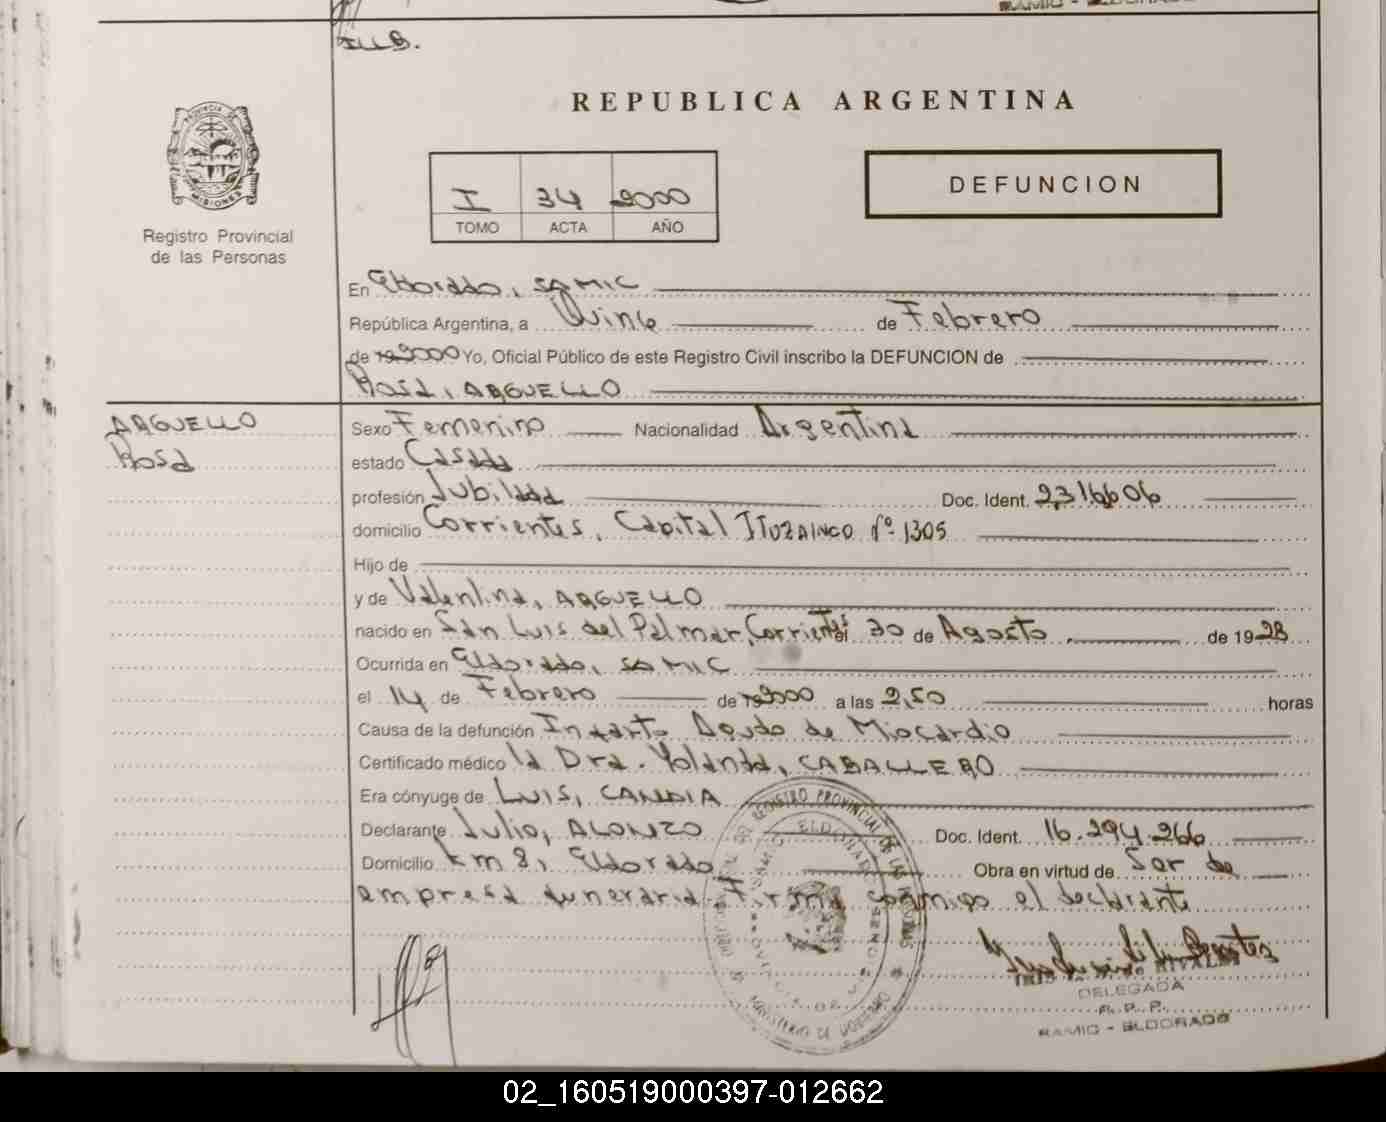 RAMIC - ELDORADO
ILLB.
PROVINCIA DE
MISIONES
Registro Provincial
de las Personas
REPUBLICA ARGENTINA
I 34 2000
TOMO ACTA AÑO
DEFUNCION
En Eldorado, SAMIC
República Argentina, a Quince de Febrero
de 2000 Yo, Oficial Público de este Registro Civil inscribo la DEFUNCION de
Rosa, ARGUELLO
ARGUELLO
Rosa
Sexo Femenino Nacionalidad Argentina
estado Casada
profesión Jubilada Doc. Ident. 2.316606
domicilio Corrientes, Capital ITUZAINCO Nº 1305
Hijo de
y de Valentina, ARGUELLO
nacido en San Luis del Palmar, Corrientes el 30 de Agosto de 1928
Ocurrida en Eldorado, SAMIC
el 14 de Febrero de 2000 a las 2,50 horas
Causa de la defunción Infarto Agudo de Miocardio
Certificado médico la Dra. Yolanda, CABALLERO
Era cónyuge de LUIS, CANDIA
Declarante Julio, ALONZO Doc. Ident. 16.294.266
Domicilio km 8, Eldorado Obra en virtud de Ser de
empresa funeraria. Firma conmigo el declarante
REGISTRO PROVINCIAL DE LAS PERSONAS
ELDORADO
MISIONES
MINISTERIO DE GOBIERNO
DELEGADA
R.P.P.
RAMIC - ELDORADO
02_160519000397-012662